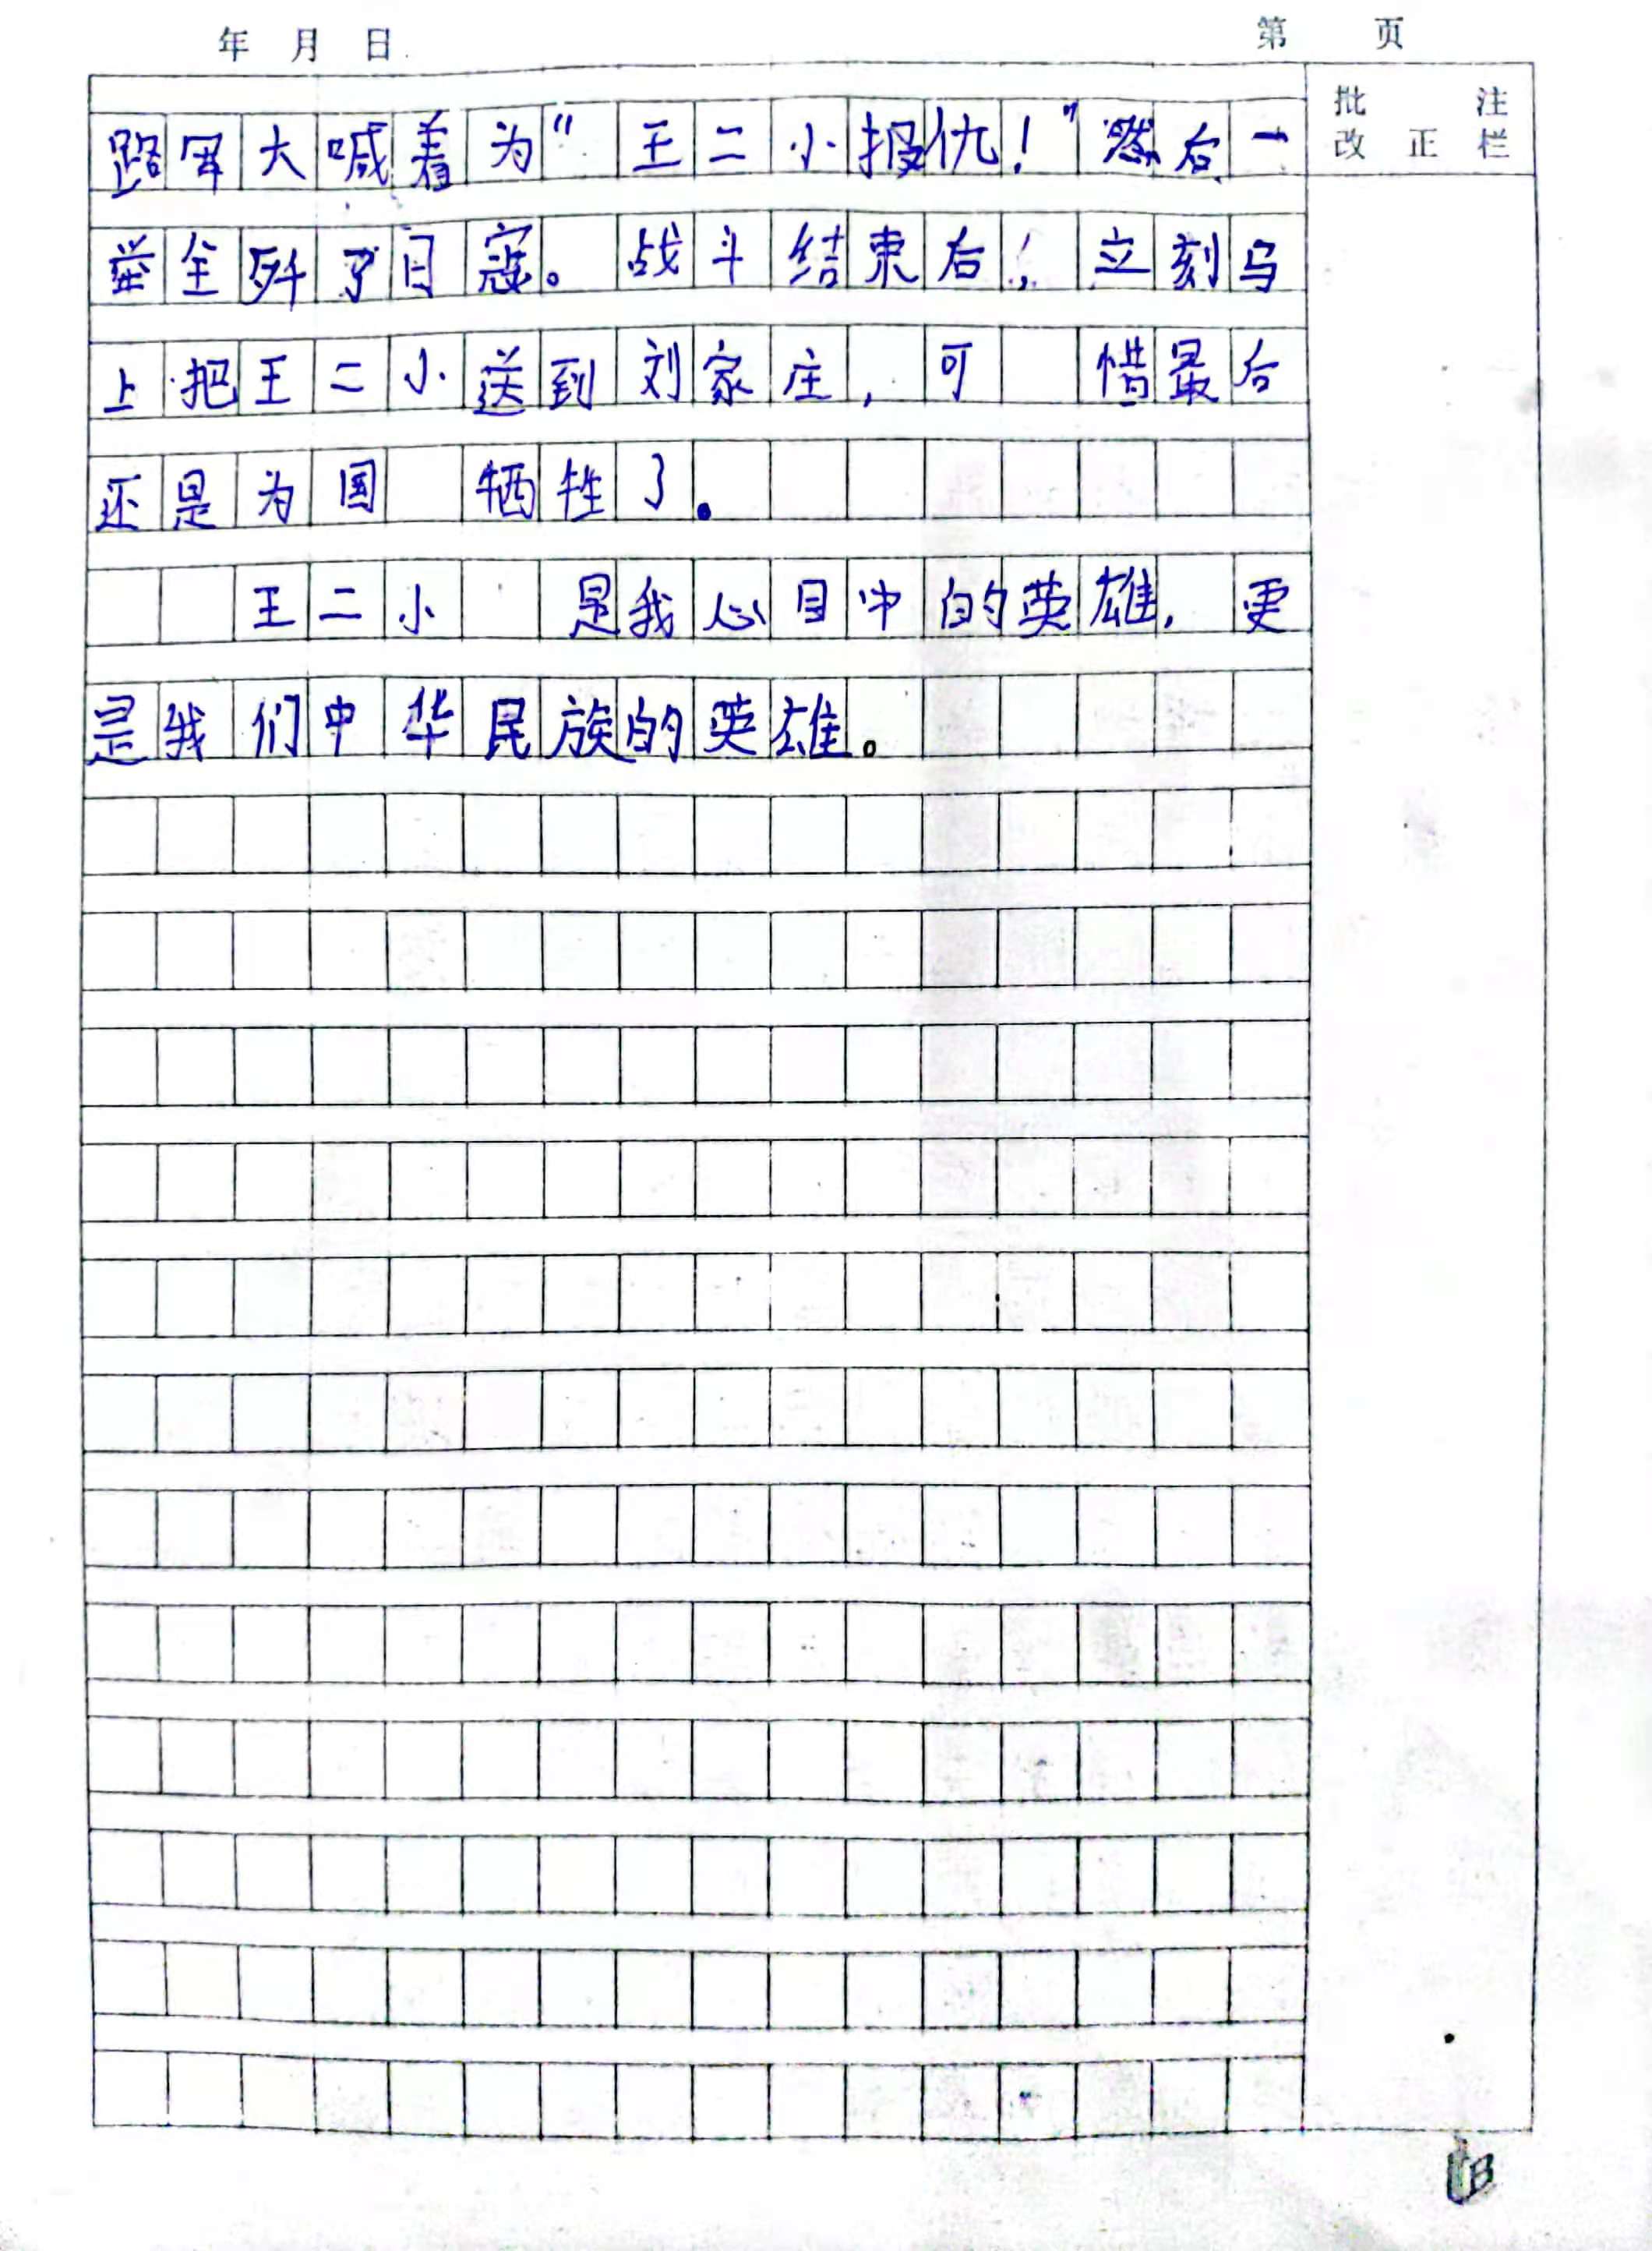 年 月 日
第 页
批 注
改 正 栏
路军大喊着为“王二小报仇!”然后一
举全歼了日寇。战斗结束后,立刻马
上把王二小送到刘家庄,可 惜最后
还是为国 牺牲了。
王二小 是我心目中的英雄,更
是我们中华民族的英雄。